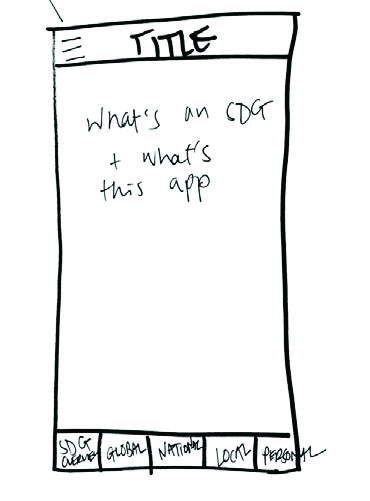 TITLE
What's an SDG
+ what's
this app
SDG
OVERVIEW
GLOBAL
NATIONAL
LOCAL
PERSONAL